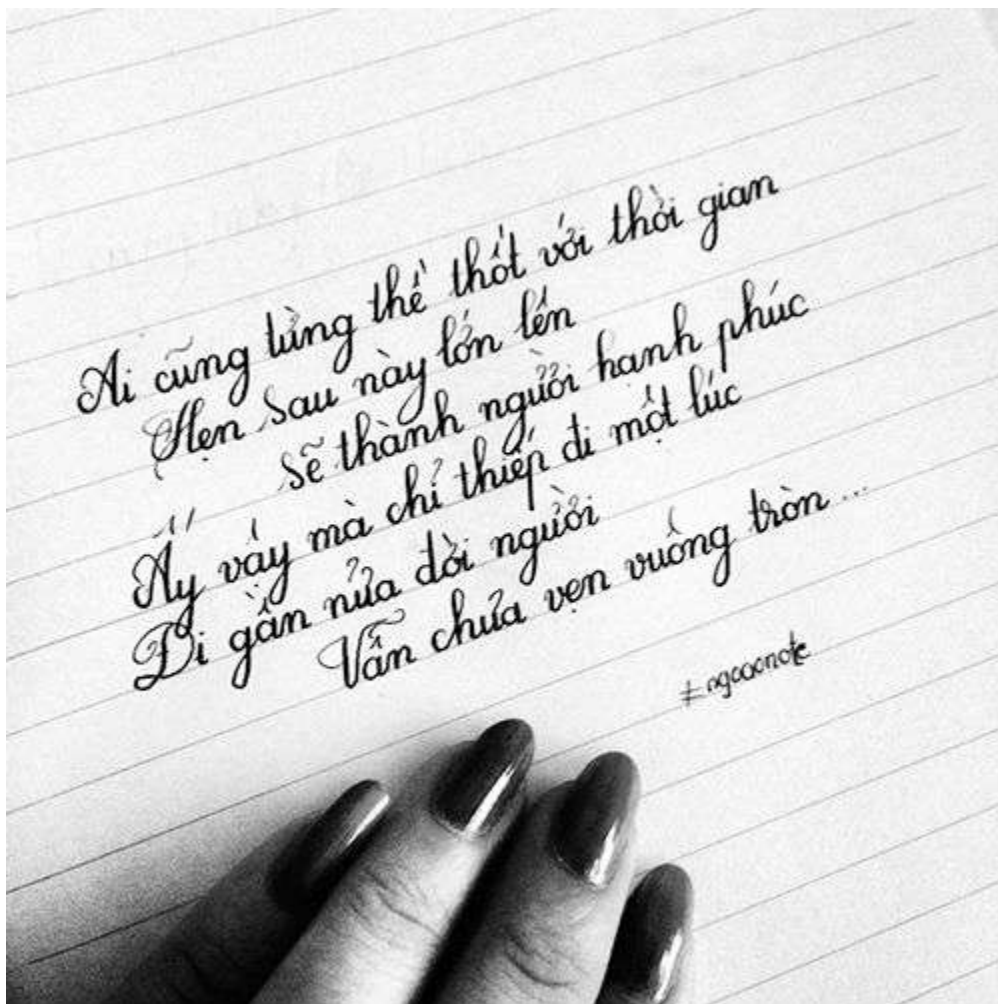 Ai cũng từng thề thốt với thời gian
Hẹn sau này lớn lên
sẽ thành người hạnh phúc
Ấy vậy mà chỉ thiếp đi một lúc
Đi gần nửa đời người
Vẫn chưa vẹn vuông tròn...
#ngaoonote